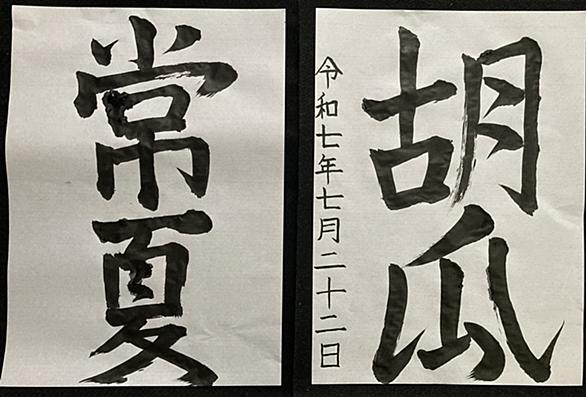 胡瓜
令和七年七月二十二日
常夏